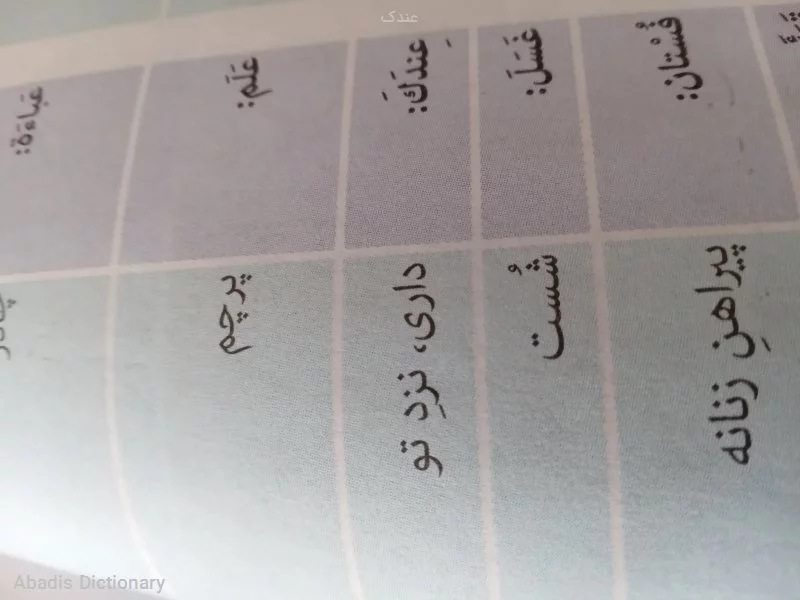 عندک
فُسْتان: پیراهنِ زنانه
غَسَلَ: شُست
عِندَكَ: داری، نزدِ تو
عَلَم: پرچم
عَباءَة:
Abadis Dictionary